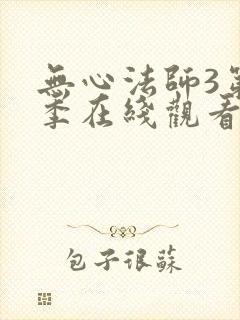 無心法師3第
季在綫觀看
包子很蘇